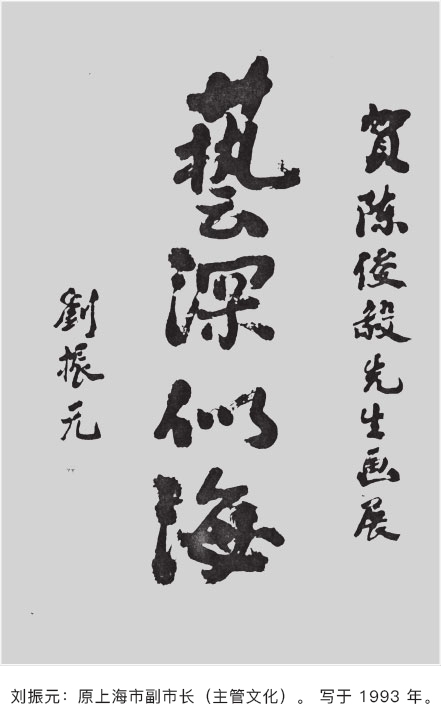 賀陈俊毅先生画展
藝深似海
劉振元
刘振元：原上海市副市长（主管文化）。 写于 1993 年。